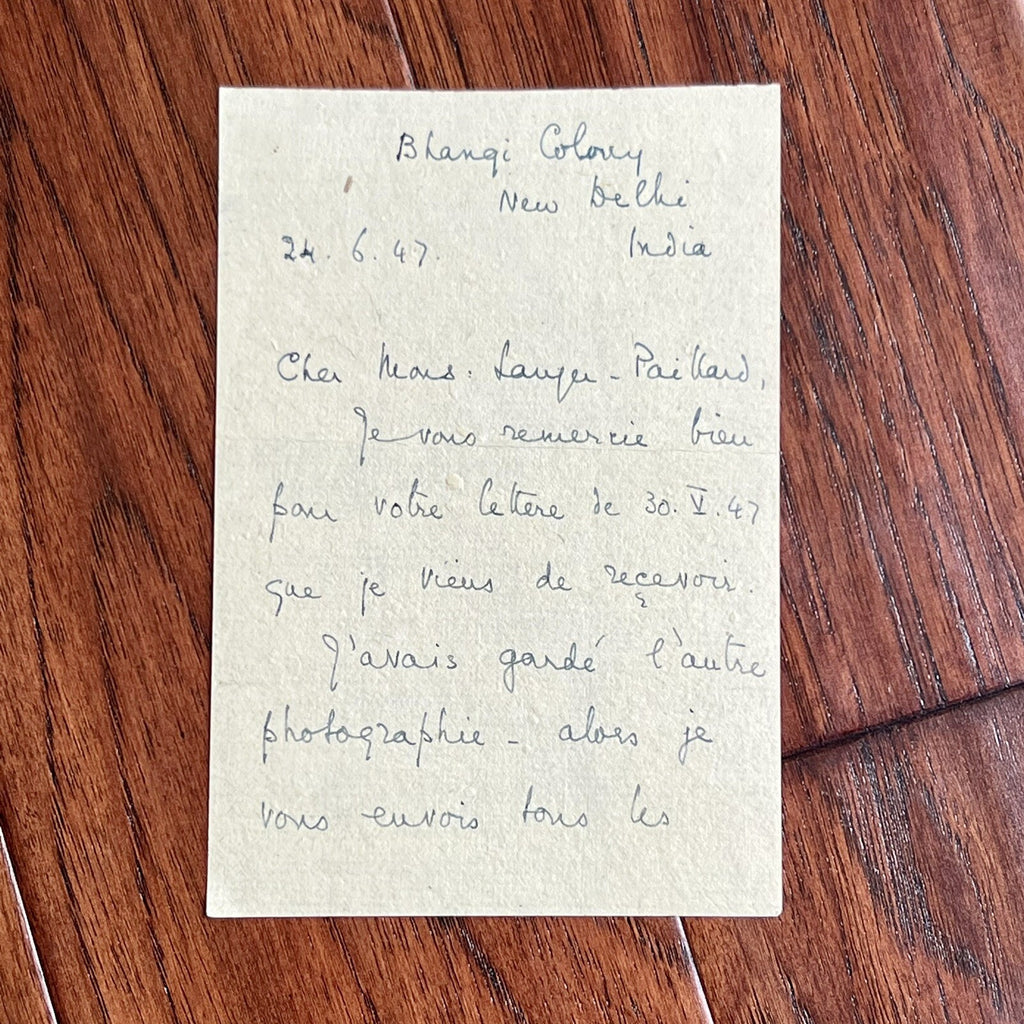 Bhangi Colony
New Delhi
24. 6. 47. India
Cher Mons. Langer - Paillard,
Je vous remercie bien
pour votre lettere de 30. V. 47
que je viens de reçevoir.
J'avais gardé l'autre
photographie - alors je
vous envois tous les